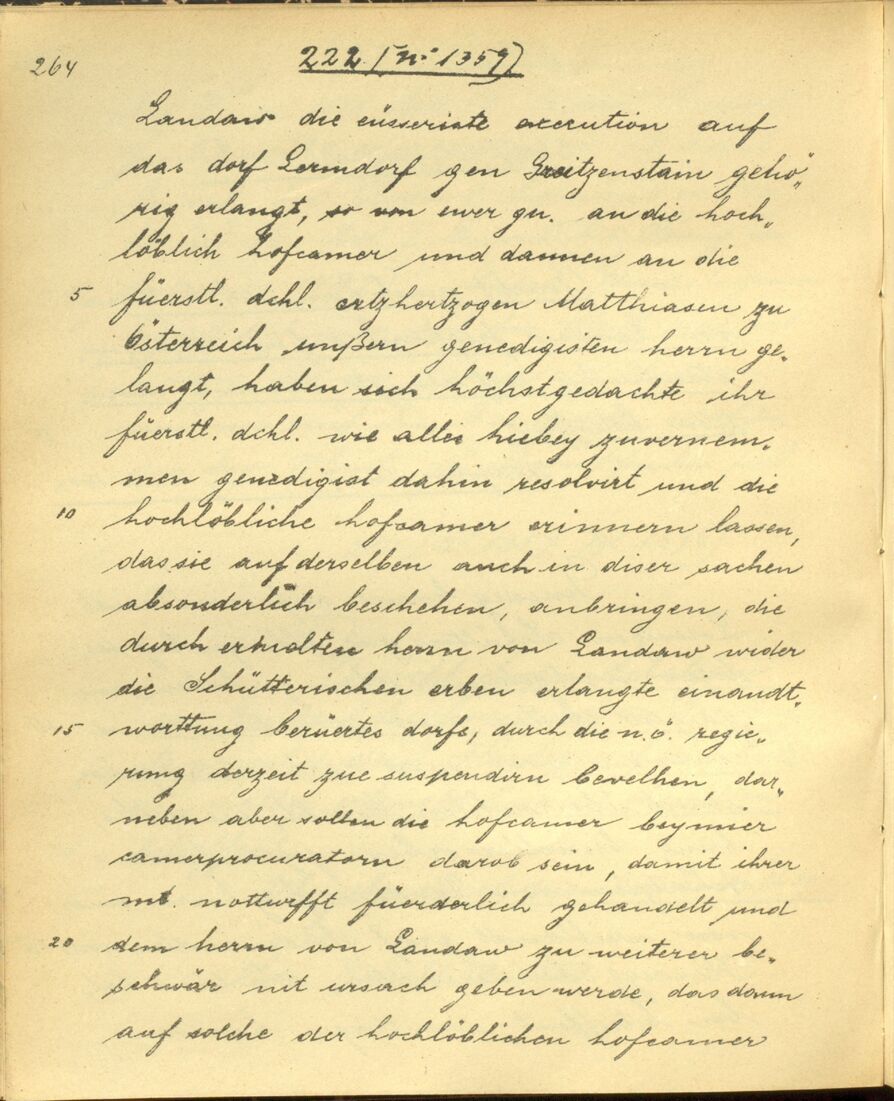 264
222. (No 1359)
Landaw die eüsseriste execution auf
das dorf Lermdorf gen Greitzenstain gehö„
rig erlangt, so von ewer gn. an die hoch„
löblich hofcamer und dannen an die
5 füerstl. dchl. ertzhertzogen Matthiasen zu
Österreich unßern genedigisten herrn ge„
langt, haben sich höchstgedachte ihr
füerstl. dchl. wie alles hiebey zuvernem„
men genedigist dahin resolvirt und die
10 hochlöbliche hofcamer erinnern lassen,
das sie auf derselben auch in diser sachen
absonderlich beschehen, anbringen, die
durch ermelten herrn von Landaw wider
die Schütterischen erben erlangte einandt„
15 worttung berüertes dorfs, durch die n. ö. regie„
rung derzeit zue suspendirn bevelhen, dar„
neben aber sollen die hofcamer bey mier
camerprocuratorn darob sein, damit ihrer
mt. notturfft füerderlich gehandelt und
20 dem herrn von Landaw zu weiterer be„
schwär nit ursach geben werde, das dann
auf solche der hochlöblichen hofcamer